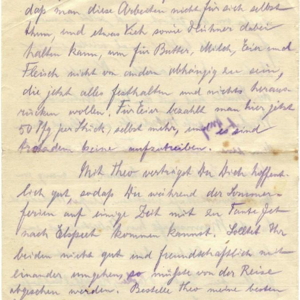 daß man diese Arbeiten nicht für sich selbst
thun, und etwas Vieh sowie Hühner dabei
halten kann, um für Butter, Milch, Eier und
Fleisch nicht von andern abhängig zu sein,
die jetzt alles festhalten und nichts heraus
rücken wollen. Für Eier bezahlt man hier jetzt
50 Pfg per Stück, selbst mehr, und es sind
trotzdem keine aufzutreiben.
Mit Theo verträgst Du Dich hoffent-
lich gut, sodaß Du während der Sommer-
ferien auf einige Zeit mit zu Tante Jet
nach Elspeet kommen kannst. Solltet Ihr
beiden nicht gut und freundschaftlich mit
einander umgehen, so müßte von der Reise
abgesehen werden. Bestelle Theo meine besten